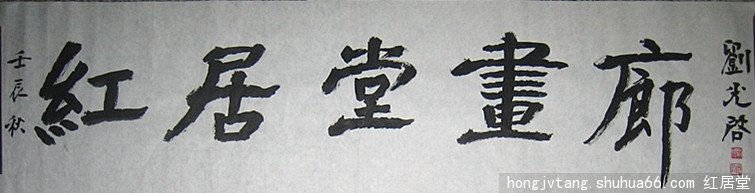 壬辰秋
紅居堂畫廊
劉光啓
hongjvtang.shuhua66.com 红居堂